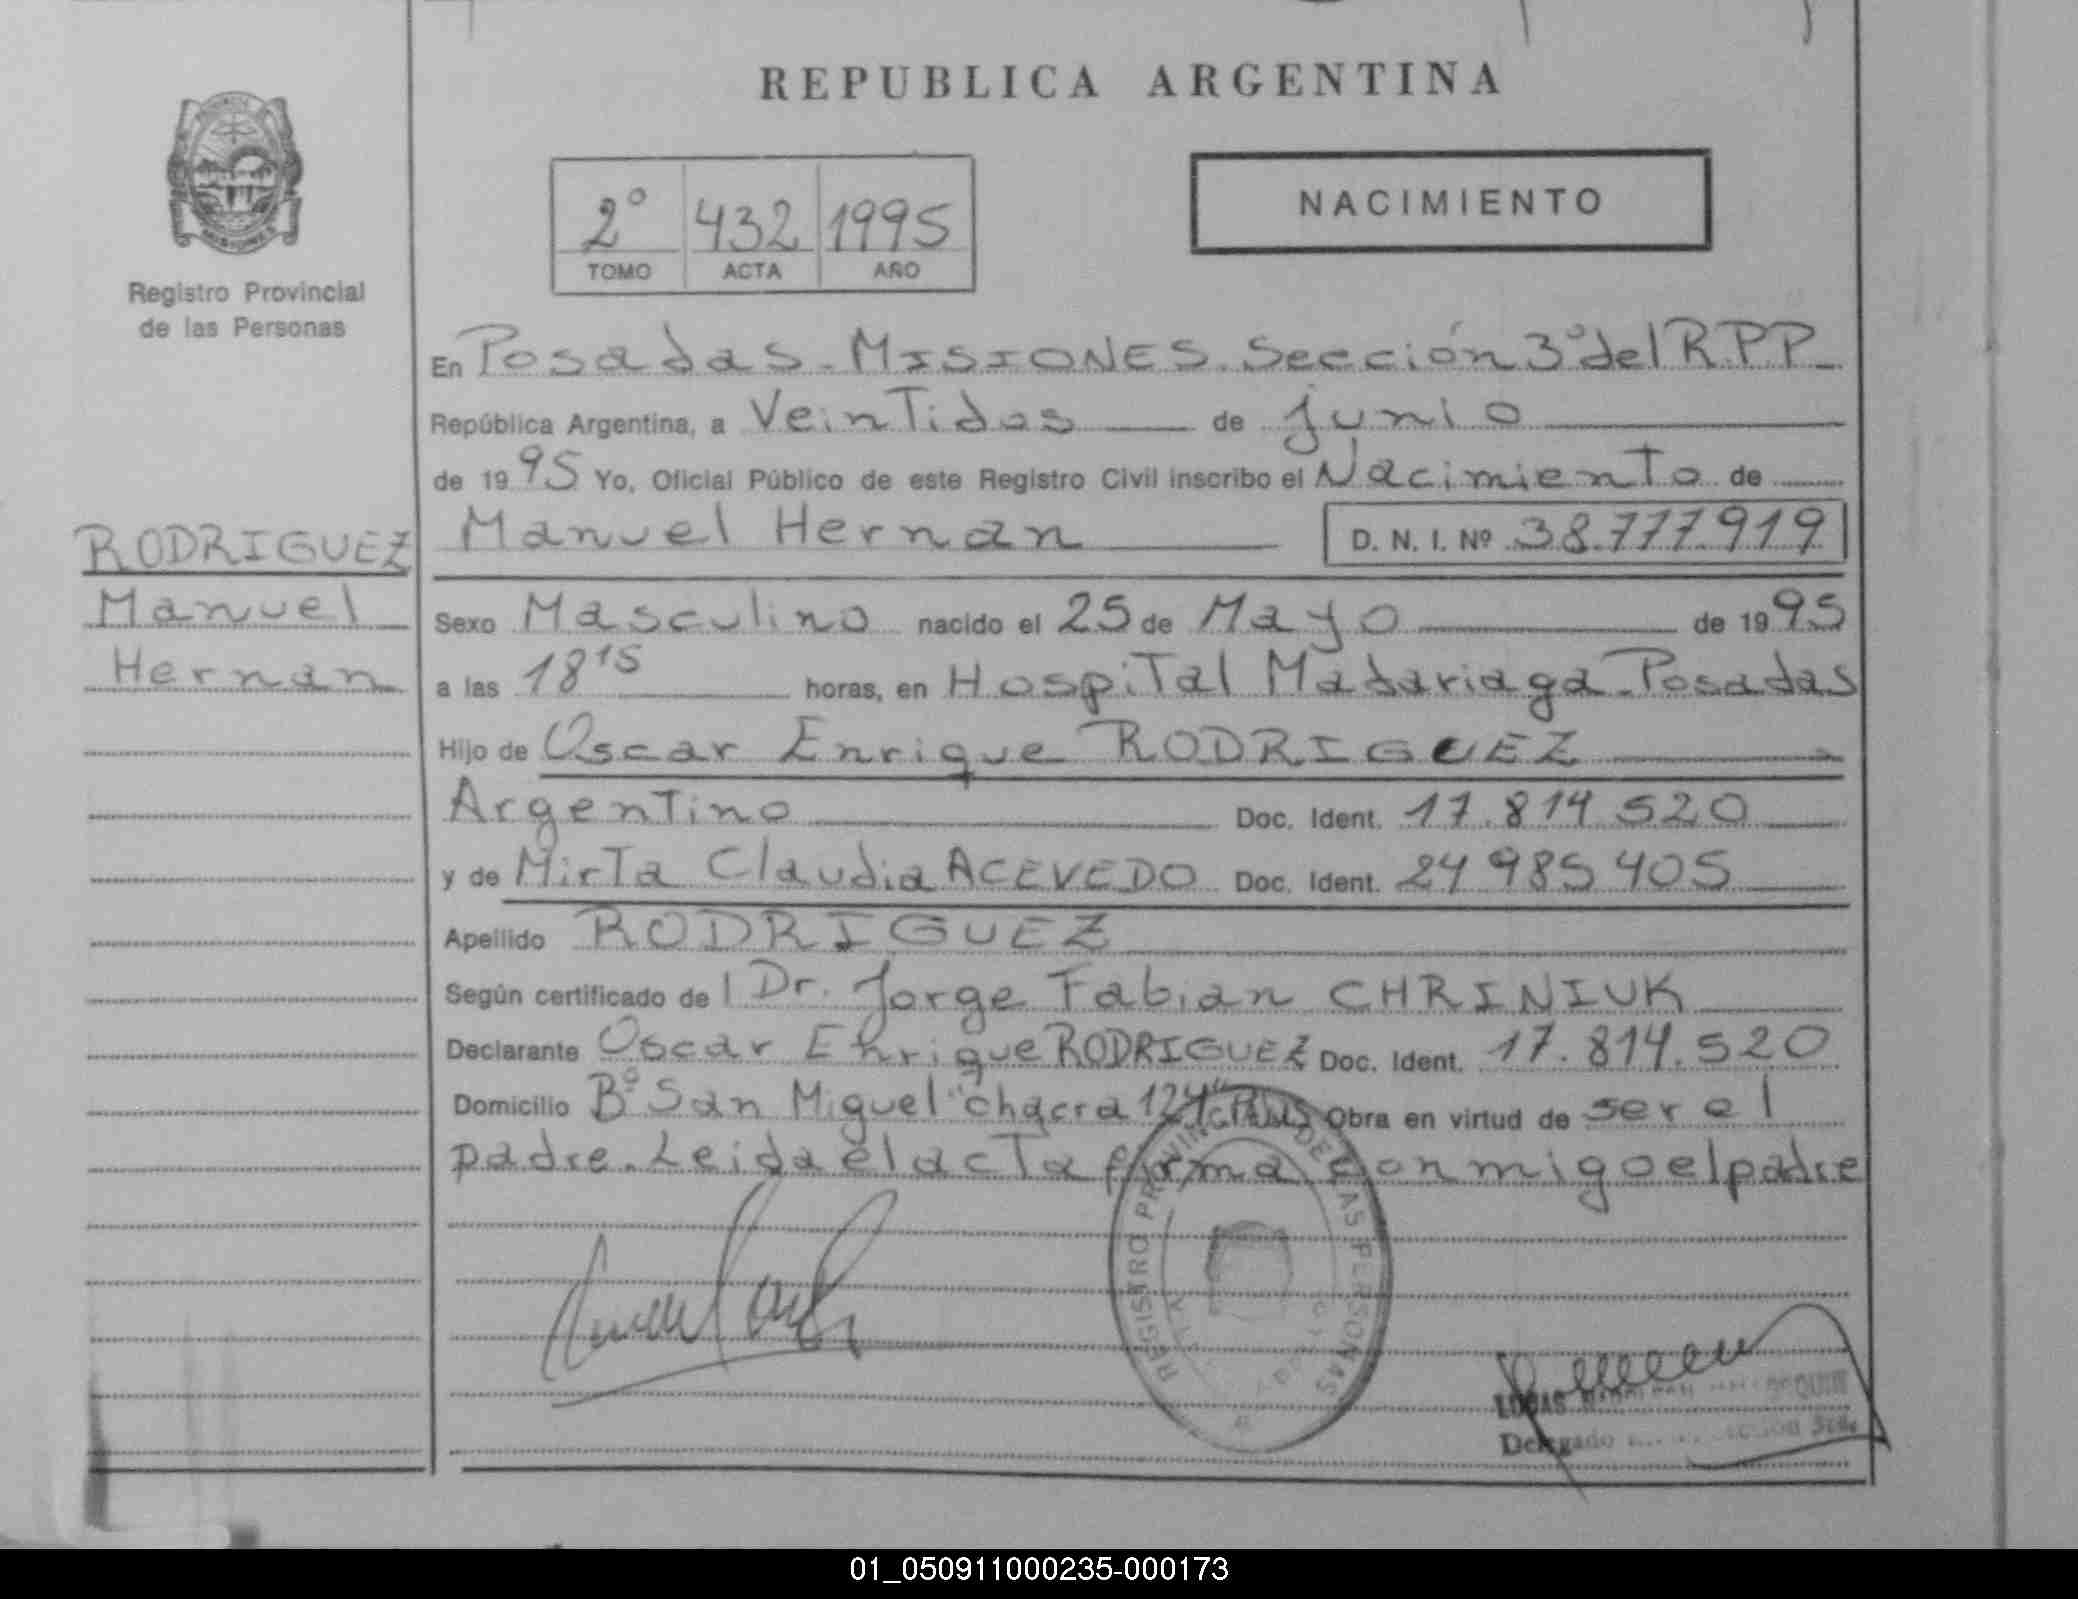 REPUBLICA ARGENTINA
2° 432 1995
TOMO ACTA AÑO
NACIMIENTO
MISIONES
Registro Provincial
de las Personas
RODRIGUEZ
Manuel
Hernan
En Posadas - MISIONES. Sección 3° del R.P.P
República Argentina, a VeinTidos de junio
de 1995 Yo, Oficial Público de este Registro Civil inscribo el NacimienTo de
Manuel Hernan D. N. I. Nº 38.777.919
Sexo Masculino nacido el 25 de Mayo de 1995
a las 18 15 horas, en HospiTal Madariaga - Posadas
Hijo de Oscar Enrique RODRIGUEZ
ArgenTino Doc. Ident. 17.814.520
y de MirTa Claudia ACEVEDO Doc. Ident. 24 985 405
Apellido RODRIGUEZ
Según certificado de l Dr. Jorge Fabian CHRINIUK
Declarante Oscar Enrique RODRIGUEZ Doc. Ident. 17.814.520
Domicilio B° San Miguel "chacra 124" Obra en virtud de ser el
padre. Leida el acTa firma conmigo el padre
REGISTRO PROVINCIAL DE LAS PERSONAS
LUCAS
Delegado
01_050911000235-000173